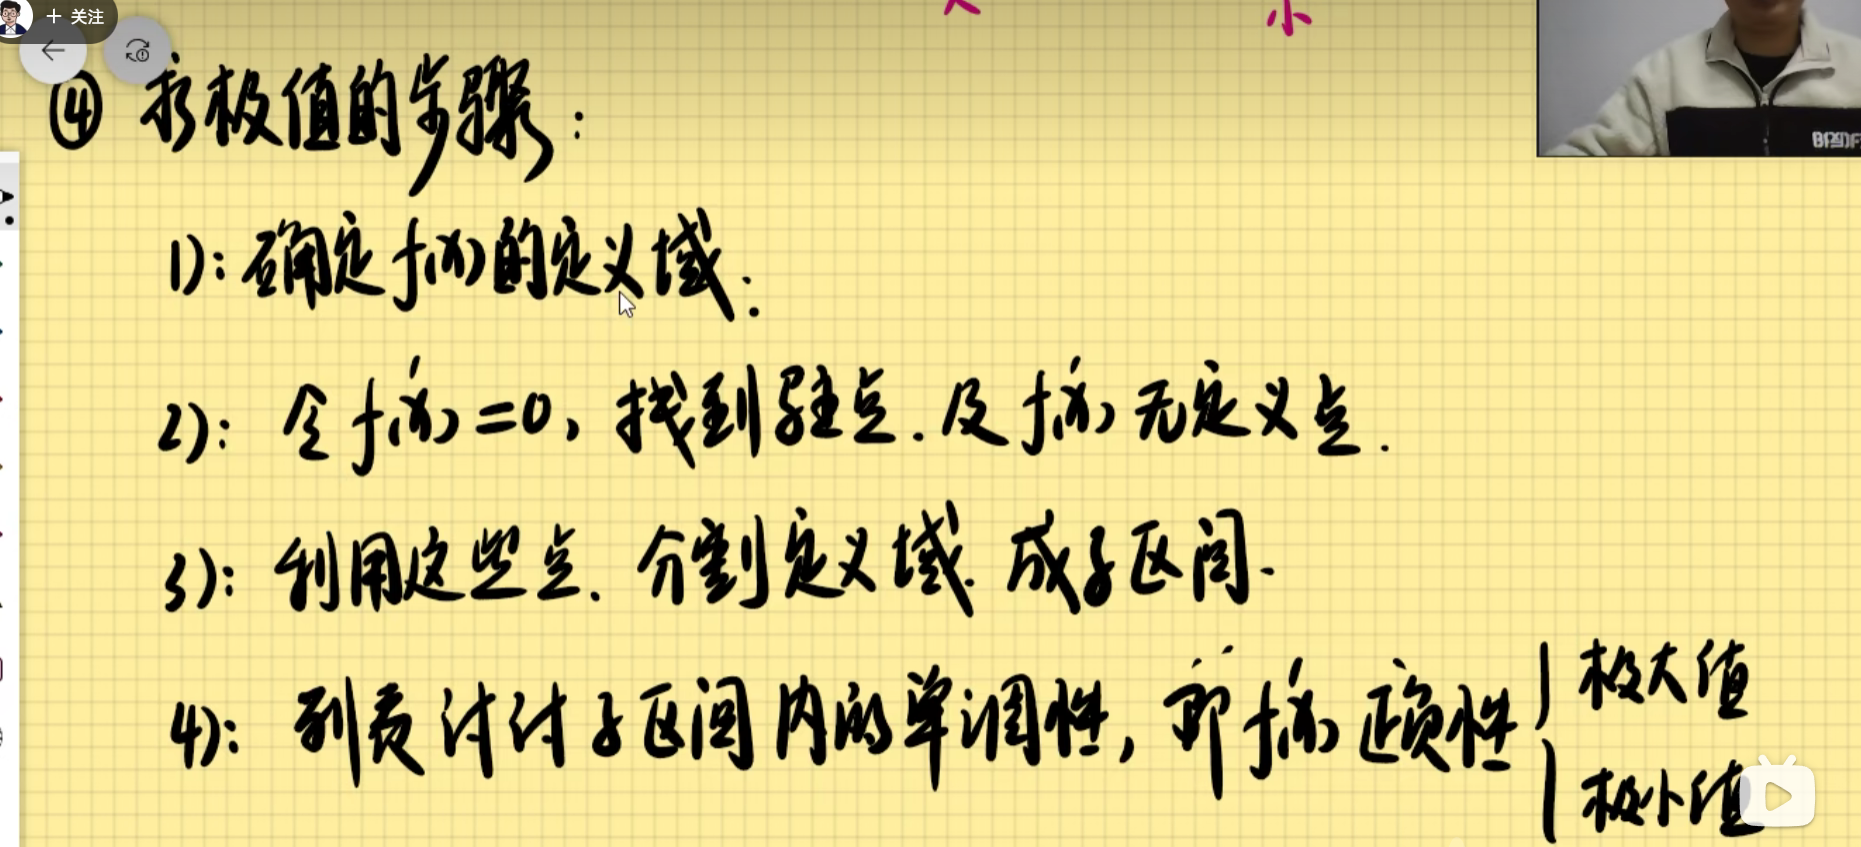 + 关注
小
④ 求极值的步骤：
1)：确定f(x)的定义域．
2)：令f'(x)=0，找到驻点．及f'(x)无定义点．
3)：利用这些点．分割定义域．成子区间．
4)：列表讨讨子区间内的单调性，即f'(x)正负性
极大值
极小值